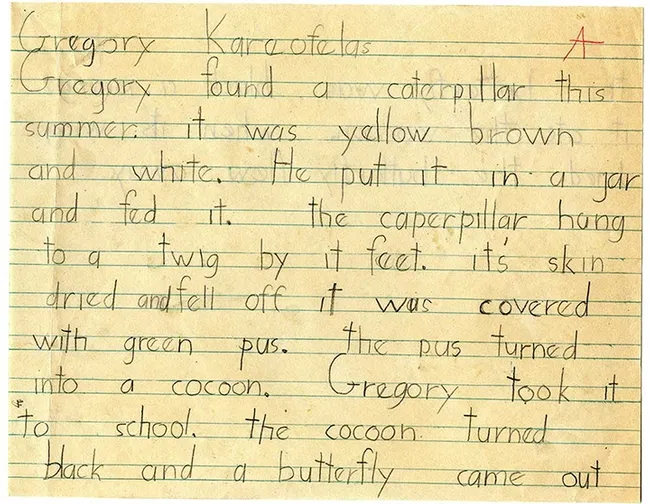 Gregory Kareofelas A
Gregory found a caterpillar this
summer. it was yellow brown
and white. He put it in a jar
and fed it. the caperpillar hung
to a twig by it feet. it's skin
dried and fell off it was covered
with green pus. the pus turned
into a cocoon. Gregory took it
to school. the cocoon turned
black and a butterfly came out